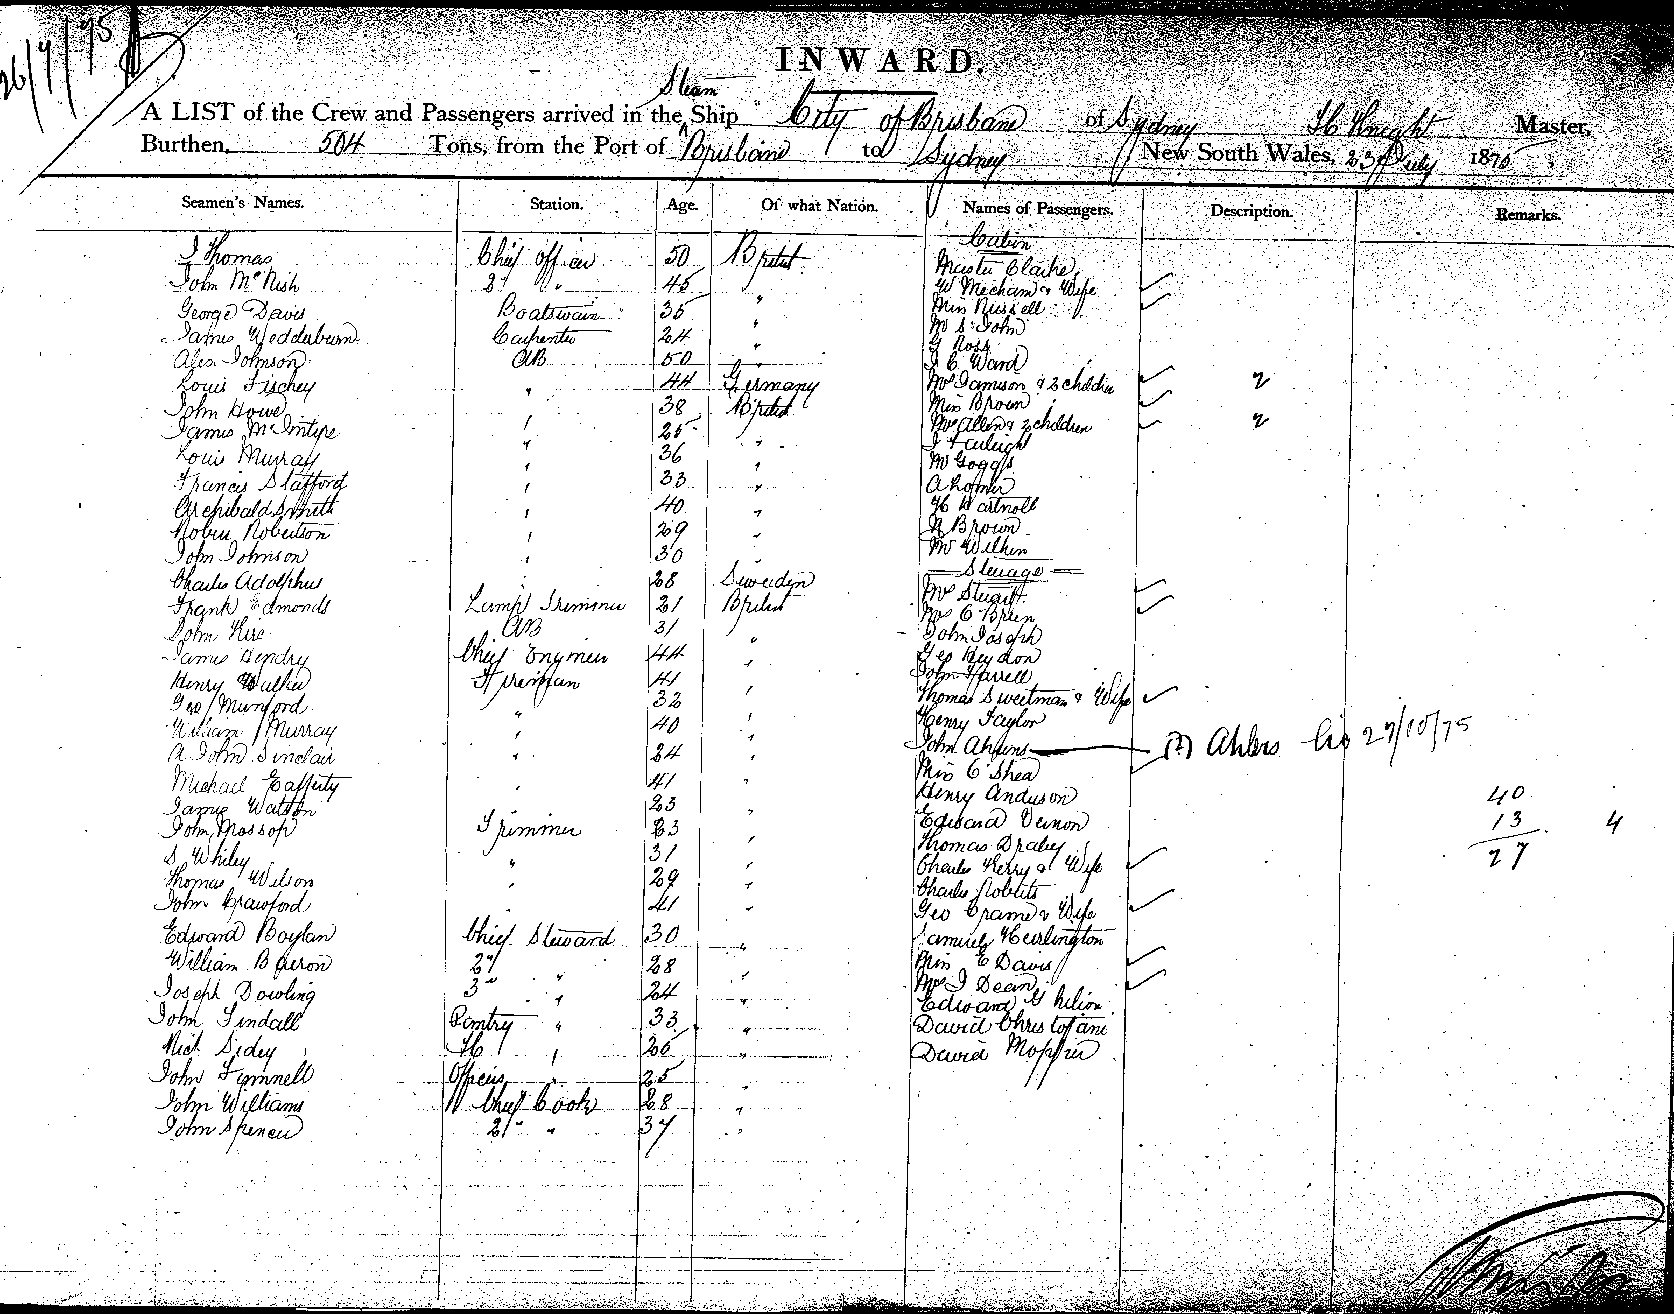 26/7/75
INWARD.
Steam
A LIST of the Crew and Passengers arrived in the Ship City of Brisbane of Sydney H Knight Master,
Burthen, 504 Tons, from the Port of Brisbane to Sydney New South Wales, 23 July 1875
Seamen's Names. Station. Age. Of what Nation. Names of Passengers. Description. Remarks.
Cabin
J Thomas Chief Officer 50 British Master Clarke
John McNish 2d " 45 " W Mecham & Wife
George Davis Boatswain 35 " Miss Russell
James Wedderburn Carpenter 24 " Mr St John
G Ross
Alex Johnson AB 50 " J C Ward
Louis Fischey " 44 Germany Mrs Jamison & 2 children 2
John Howe " 38 British Miss Brown
James McIntyre " 25 " Mrs Allen & 2 children 2
Louis Murray " 36 " J Fairleigh
Francis Stafford " 33 " Mr Goggs
Archibald Smith " 40 " A Romer
H Wartnoll
Robert Robertson " 29 " R Brown
John Johnson " 30 " Mr Wilkin
Steerage
Charles Adolphus " 28 Sweeden Mrs Stuart
Frank Edmonds Lamp Trimmer 21 British Mrs O'Brien
John Kirs AB 31 " John Joseph
James Hendry Chief Engineer 44 " Geo Heydon
Henry Walker Fireman 41 " John Farrell
Geo Munford " 32 " Thomas Sweetman & Wife
William Murray " 40 " Henry Taylor
A John Sinclair " 24 " John Ahrens Ahlers 27/10/75
Michael Cafferty " 41 " Miss O'Shea
James Watson 23 " Henry Anderson 40
John Mossop Trimmer 23 " Edward Vernon 13 4
S Whiley " 31 " Thomas Draley 27
Thomas Wilson " 29 " Charles Kerry & Wife
John Crawford " 41 " Charles Roberts
Geo Crame & Wife
Edward Boylan Chief Steward 30 " Samuel Heirlington
William Barron 2d " 28 " Miss E Davis
Joseph Dowling 3d " 24 " Mrs J Dean
Edward
John Tindall Pantry " 33 " David Christofani
Rich Sidey " 26 " David
John Fumnell Officers " 25 "
John Williams Chief Cook 28 "
John Spencer 2d " 37 "